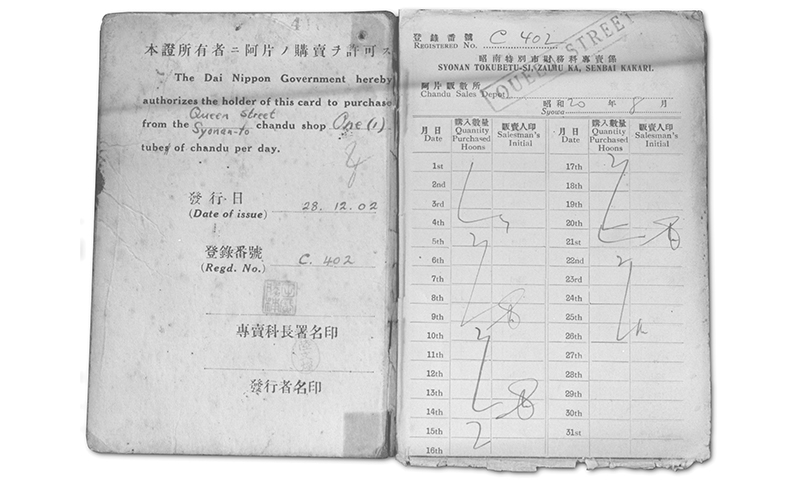 本證所有者ニ阿片ノ購賣ヲ許可ス
The Dai Nippon Government hereby
authorizes the holder of this card to purchase
Queen Street
from the Syonan-to chandu shop One (1)
tubes of chandu per day.
發行日
(Date of issue) 28.12.02
登錄番號
(Regd. No.) C. 402
專賣科長署名印
發行者名印
登錄番號
REGISTERED No. C 402
昭南特別市財務科專賣係
SYONAN TOKUBETU-SI, ZAIMU KA, SENBAI KAKARI.
QUEEN STREET
阿片販賣所
Chandu Sales Depot
昭和 20 年 8 月
Syowa
月日 購入數量 販賣人印 月日 購入數量 販賣人印
Date Quantity Purchased Hoons Salesman's Initial Date Quantity Purchased Hoons Salesman's Initial
1st 17th
2nd 18th
3rd 19th
4th 20th
5th 21st
6th 22nd
7th 23rd
8th 24th
9th 25th
10th 26th
11th 27th
12th 28th
13th 29th
14th 30th
15th 31st
16th